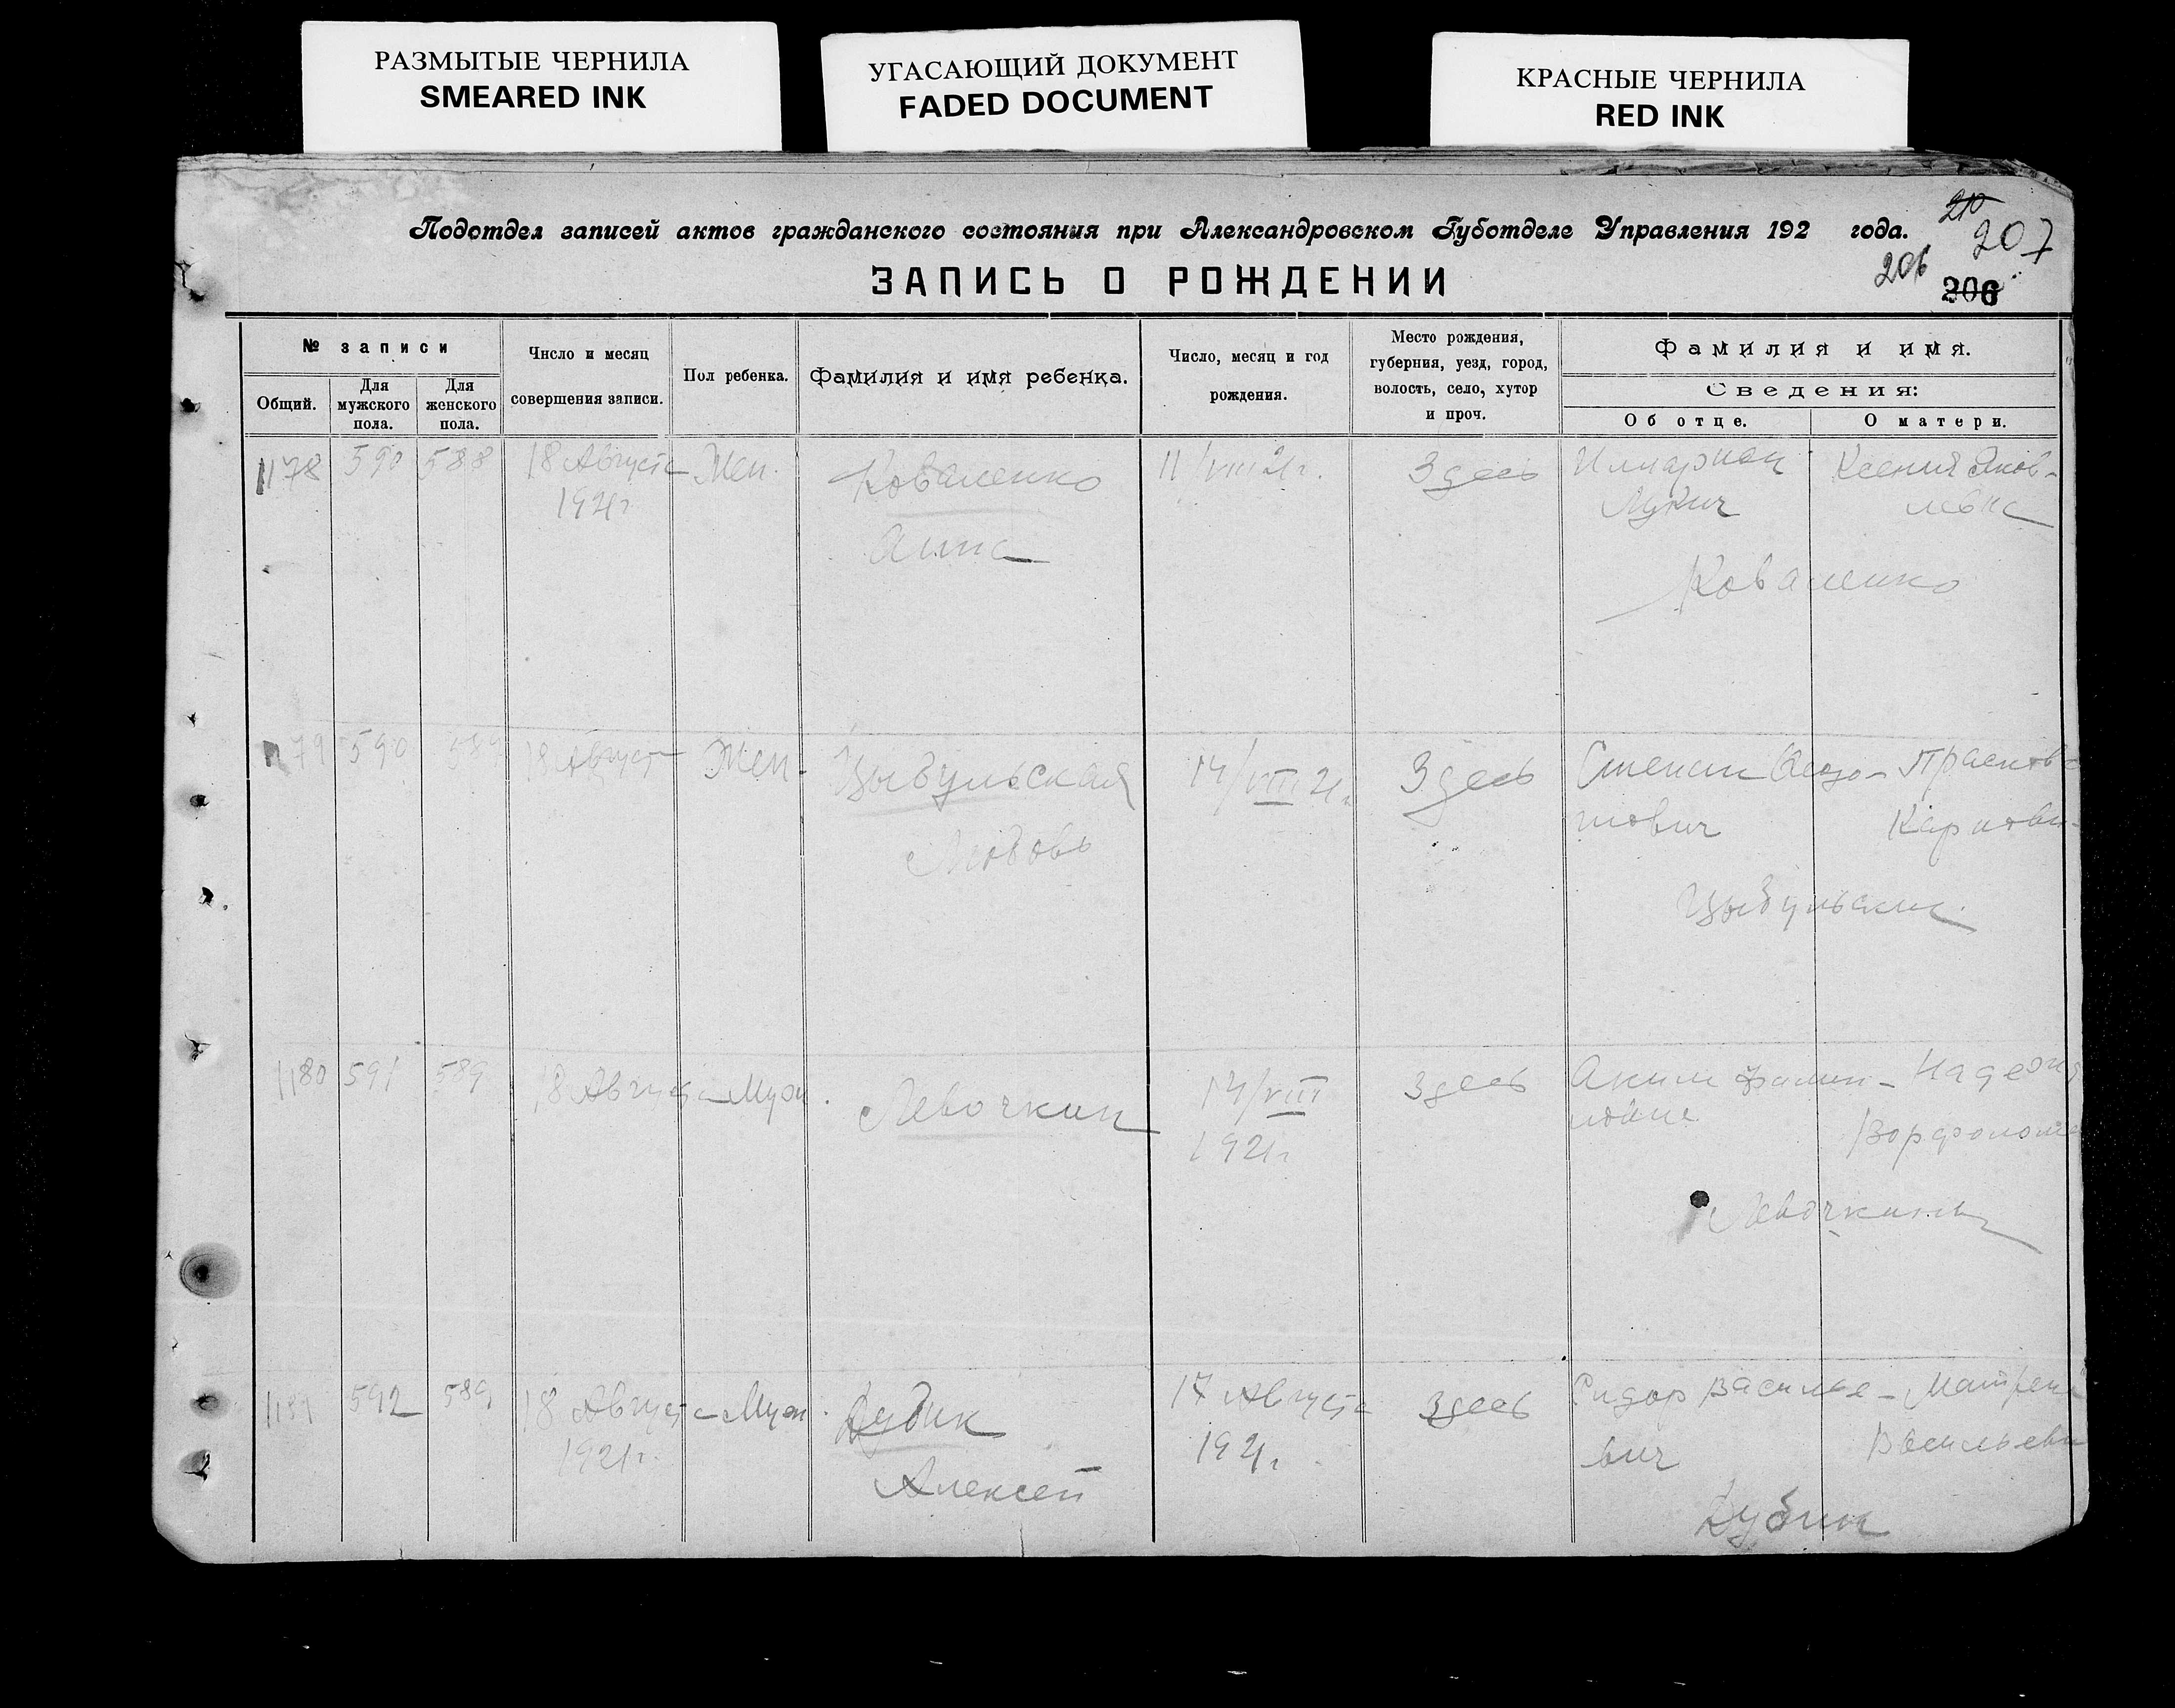 РАЗМЫТЫЕ ЧЕРНИЛА
SMEARED INK
УГАСАЮЩИЙ ДОКУМЕНТ
FADED DOCUMENT
КРАСНЫЕ ЧЕРНИЛА
RED INK
Подотдел записей актов гражданского состояния при Александровском Губотделе Управления 192 года.
210
207
206
306
ЗАПИСЬ О РОЖДЕНИИ
№ записи
Общий.
Для мужского пола.
Для женского пола.
Число и месяц
совершения записи.
Пол ребенка.
Фамилия и имя ребенка.
Число, месяц и год
рождения.
Место рождения,
губерния, уезд, город,
волость, село, хутор
и проч.
Фамилия и имя.
Сведения:
Об отце.
О матери.
1178 590 588 18 Августа Жен. Коваленко 11/VIII 21г. Здесь Иларион Ксения Яков-
1921г Анна Лукич левна
Коваленко
1179 590 589 18 Август Жен. Цыбульская 14/VIII 21г. Здесь Степан Прасковья
Любовь Карповн
Цыбульские
1180 591 589 18 Августа Муж. Левочкин 14/VIII Здесь Аким Надежд
1921г
Левочкины
1181 592 589 18 Августа Муж. Дудик 17 Августа Здесь Сидор Василье- Матрена
1921г. Алексей 1921г вич Васильевн